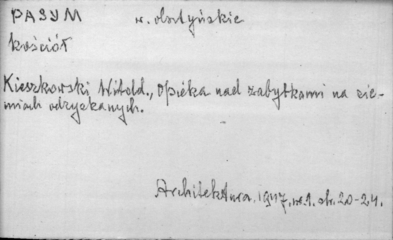 PASYM w. olsztyńskie
kościół
Kieszkowski Witold., Opieka nad zabytkami na zie-
miach odzyskanych.
Architektura. 1947, nr. 1. str. 20-24.